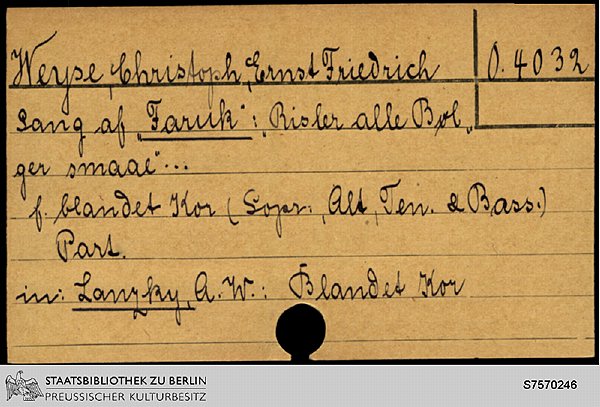 Weyse, Christoph, Ernst Friedrich
O. 4032
Sang af „Faruk“: „Risler alle Bøl„
ger smaae“...
f. blandet Kor (Sopr., Alt, Ten. & Bass.)
Part.
in: Lanzky, A. W.: Blandet Kor
STAATSBIBLIOTHEK ZU BERLIN
PREUSSISCHER KULTURBESITZ
S7570246